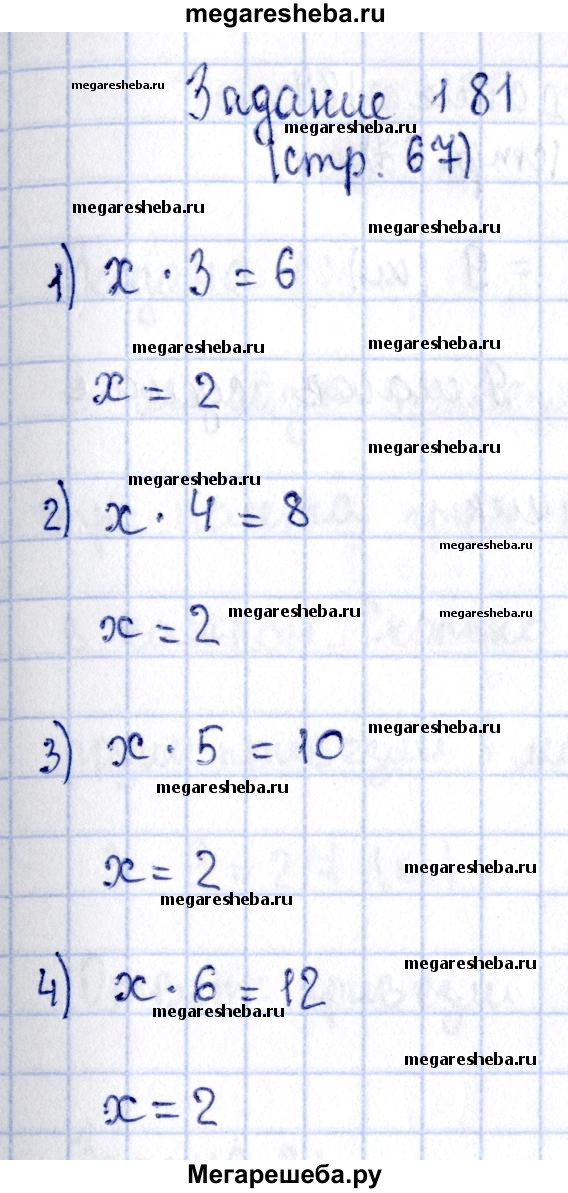 megaresheba.ru
megaresheba.ru
Задание 181
megaresheba.ru
(стр. 67)
megaresheba.ru
megaresheba.ru
1) x · 3 = 6
megaresheba.ru
megaresheba.ru
x = 2
megaresheba.ru
megaresheba.ru
2) x · 4 = 8
megaresheba.ru
megaresheba.ru
megaresheba.ru
x = 2
megaresheba.ru
3) x · 5 = 10
megaresheba.ru
megaresheba.ru
x = 2
megaresheba.ru
megaresheba.ru
4) x · 6 = 12
megaresheba.ru
megaresheba.ru
x = 2
Мегарешеба.ру